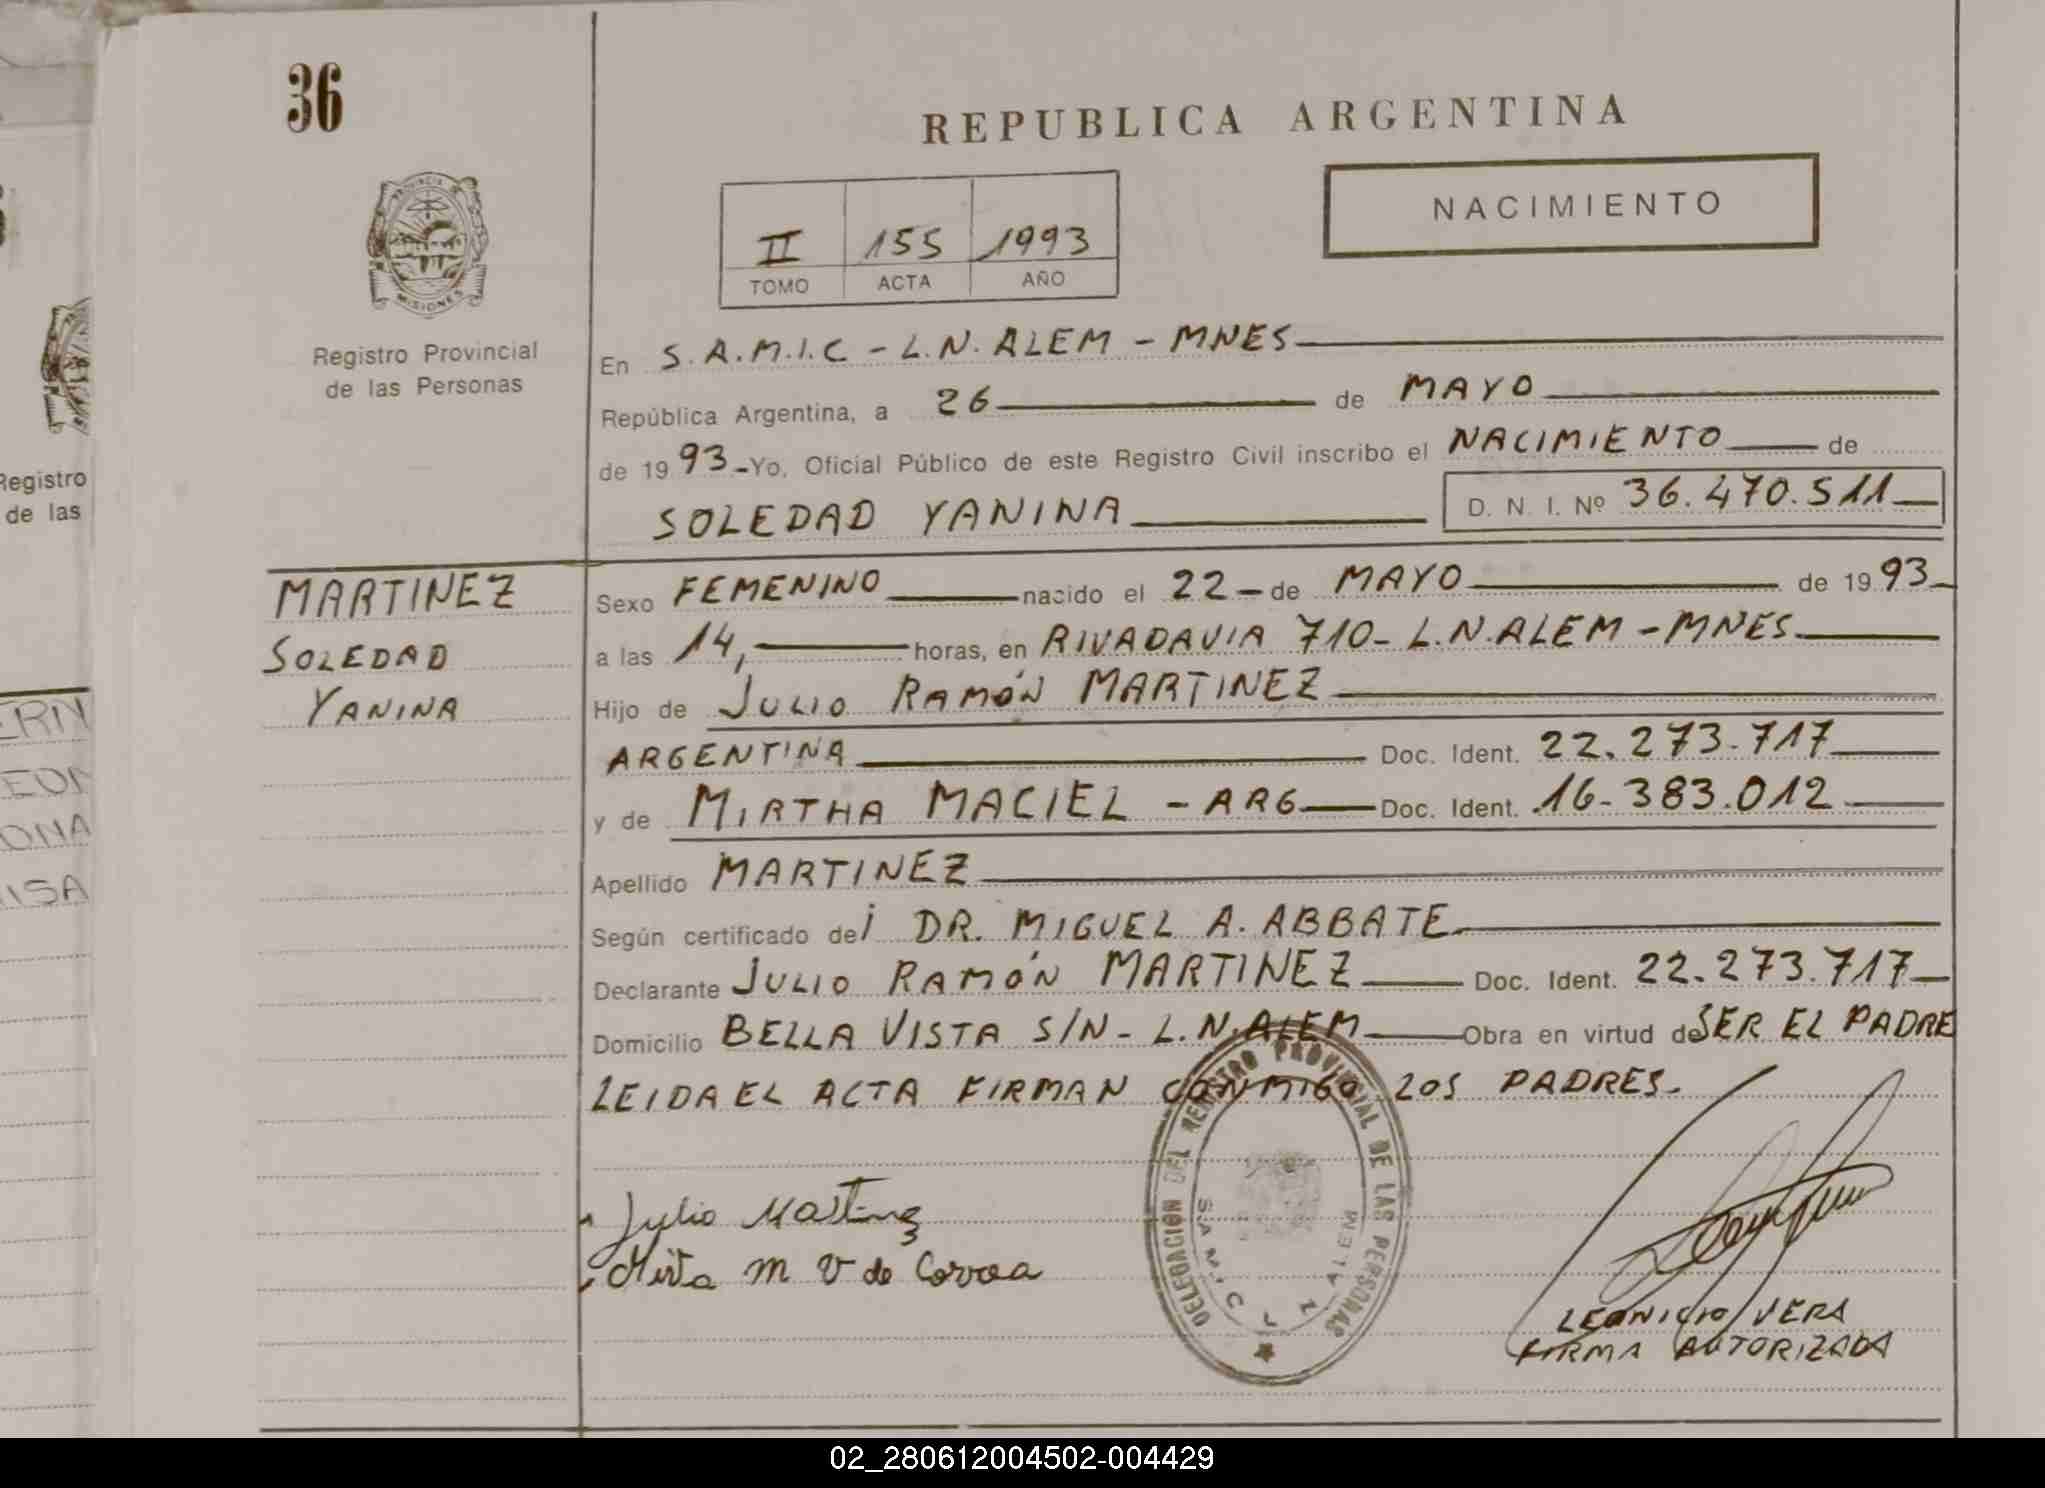 36
REPUBLICA ARGENTINA
NACIMIENTO
II 155 1993
TOMO ACTA AÑO
PROVINCIA DE
MISIONES
Registro Provincial
de las Personas
En S.A.M.I.C - L.N. ALEM - MNES
República Argentina, a 26 de MAYO
de 1993 - Yo, Oficial Público de este Registro Civil inscribo el NACIMIENTO de
SOLEDAD YANINA D. N. I. Nº 36.470.511
MARTINEZ
SOLEDAD
YANINA
Sexo FEMENINO nacido el 22 - de MAYO de 1993
a las 14, horas, en RIVADAVIA 710 - L.N.ALEM - MNES.
Hijo de JULIO RAMÓN MARTINEZ
ARGENTINA Doc. Ident. 22.273.717
y de MIRTHA MACIEL - ARG Doc. Ident. 16-383.012
Apellido MARTINEZ
Según certificado del DR. MIGUEL A. ABBATE
Declarante JULIO RAMÓN MARTINEZ Doc. Ident. 22.273.717
Domicilio BELLA VISTA S/N - L.N.ALEM Obra en virtud de SER EL PADRE
LEIDA EL ACTA FIRMAN CONMIGO LOS PADRES.
Julio Martinez
Mirta m V de Correa
DELEGACIÓN DEL REGISTRO PROVINCIAL DE LAS PERSONAS
S.A.M.I.C L N ALEM
LEONICIO VERA
FIRMA AUTORIZADA
Registro
de las
ERN
EON
ONA
ISA
02_280612004502-004429